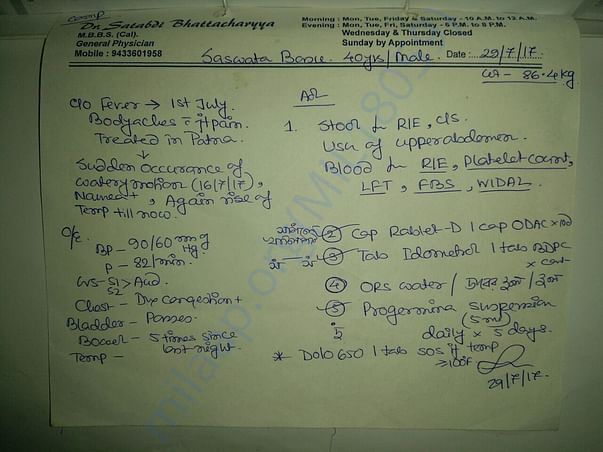 Dr. Satabdi Bhattacharyya
M.B.B.S. (Cal).
General Physician
Mobile : 9433601958
Morning : Mon, Tue, Friday & Saturday - 10 A.M. to 12 A.M.
Evening : Mon, Tue, Fri, Saturday - 6 P.M. to 8 P.M.
Wednesday & Thursday Closed
Sunday by Appointment
Saswata Bose. 40yrs/Male. Date : 29/7/17.
wt - 86.4kg
C/o Fever → 1st July.
Bodyaches = Jt pain.
Treated in Patna.
↓
Sudden occurance of
watery motion (16/7/17),
Nausea+, Again rise of
Temp till now.
O/E.
BP - 90/60 mmg
Hg.
P - 82/min.
S1
S2 > Aud
Chest -
Bladder - Passes.
Bowel - 5 times since
last night.
Temp -
Adv
1. Stool for RIE, C/S.
USG of upper abdomen.
Blood for RIE, Platelet count,
LFT, FBS, WIDAL.
2 Cap Rablet-D 1 cap ODAC x 10d
3 Tab 1 tab BDPC
x cont
4 ORS water /
5 Progermina suspension
(5ml)
daily x 5 days.
* Dolo 650 1 tab SOS if temp
≥100F
29/7/17.
milaap.org